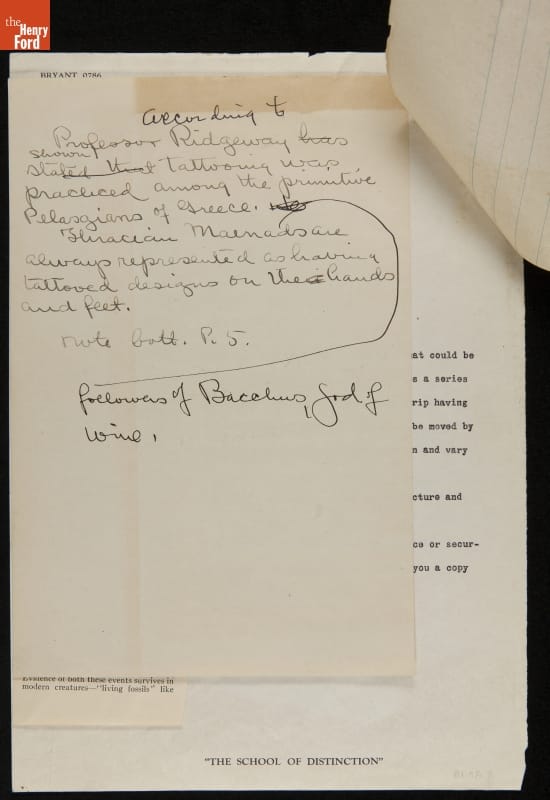 the
Henry
Ford
BRYANT 0786
according to
Professor Ridgeway has
shown
stated that tattooing was
practiced among the primitive
Pelasgians of Greece.
Thracian Maenads are
always represented as having
tattoved designs on the hands
and feet.
note bott. P. 5.
followers of Bacchus, god of
wine,
at could be
s a series
rip having
be moved by
n and vary
cture and
ce or secur-
you a copy
Evidence of both these events survives in
modern creatures—"living fossils" like
"THE SCHOOL OF DISTINCTION"